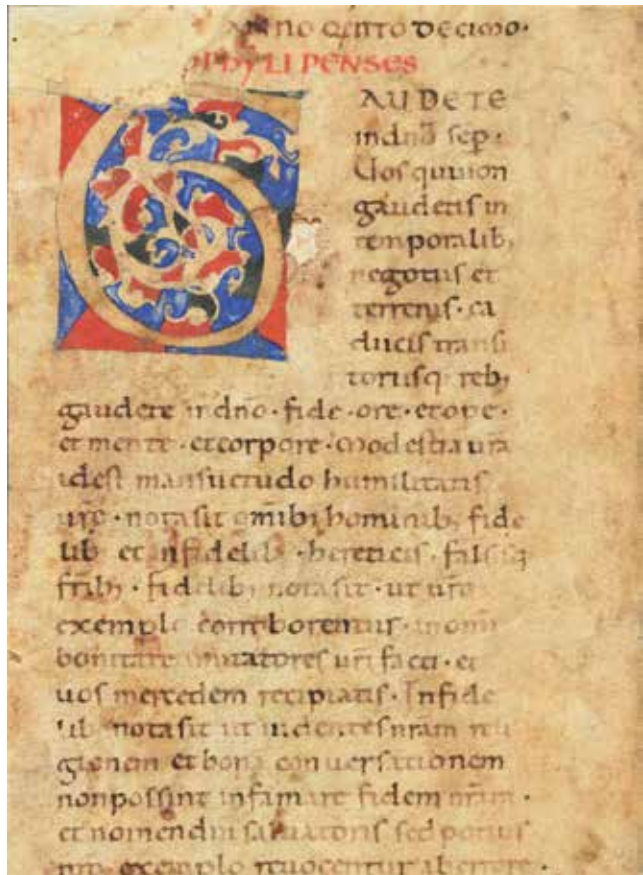 NNO QINTO DECIMO·
PHYLIPENSES
AUDETE
indnō sep·
Uos quinon
gaudetis in
temporalib;
negotiis et
terrenis· ca
ducis transi
toriisq; reb;
gaudete indnō· fide· ore· etope·
et mente· etcorpore· Modestia urā
idest mansuetudo humilitatis
urē· notasit omib; hominib; fide
lib; et infidelib; hereticis· falsisq;
frib;· fidelib; notasit· ut urō
exemplo corroborentur· inomi
bonitate imitatores uri facti· et
uos mercedem recipiatis· Infide
lib; notasit ut uidentes nram reli
gionem et bona conuersationem
nonpossint infamare fidem nram·
et nomendni saluatoris sed potius
nrō exemplo reuocentur aberrore·